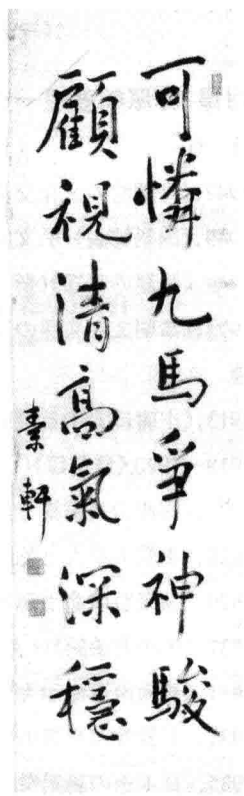 可憐九馬爭神駿
顧視清高氣深穩
素軒